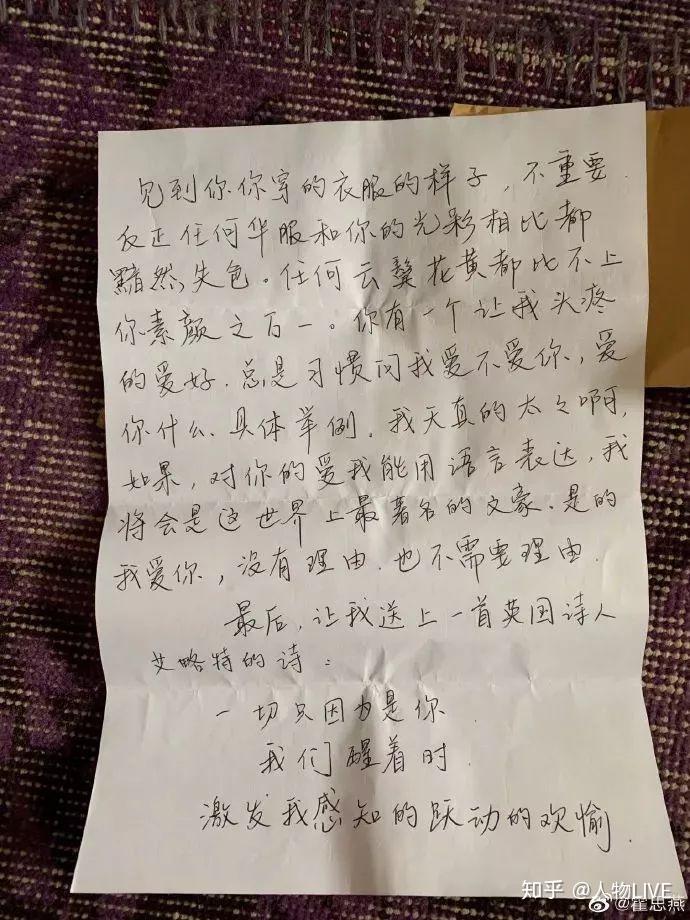 见到你你穿的衣服的样子，不重要.
反正任何华服和你的光彩相比都
黯然失色。任何云鬓花黄都比不上
你素颜之万一。你有一个让我头疼
的爱好.总是习惯问我爱不爱你，爱
你什么.具体举例.我天真的太太啊，
如果，对你的爱我能用语言表达，我
将会是这世界上最著名的文豪.是的
我爱你，没有理由.也不需要理由.
最后，让我送上一首英国诗人
艾略特的诗：
一切只因为是你.
我们醒着时.
激发我感知的跃动的欢愉.
知乎 @人物LIVE
@霍思燕